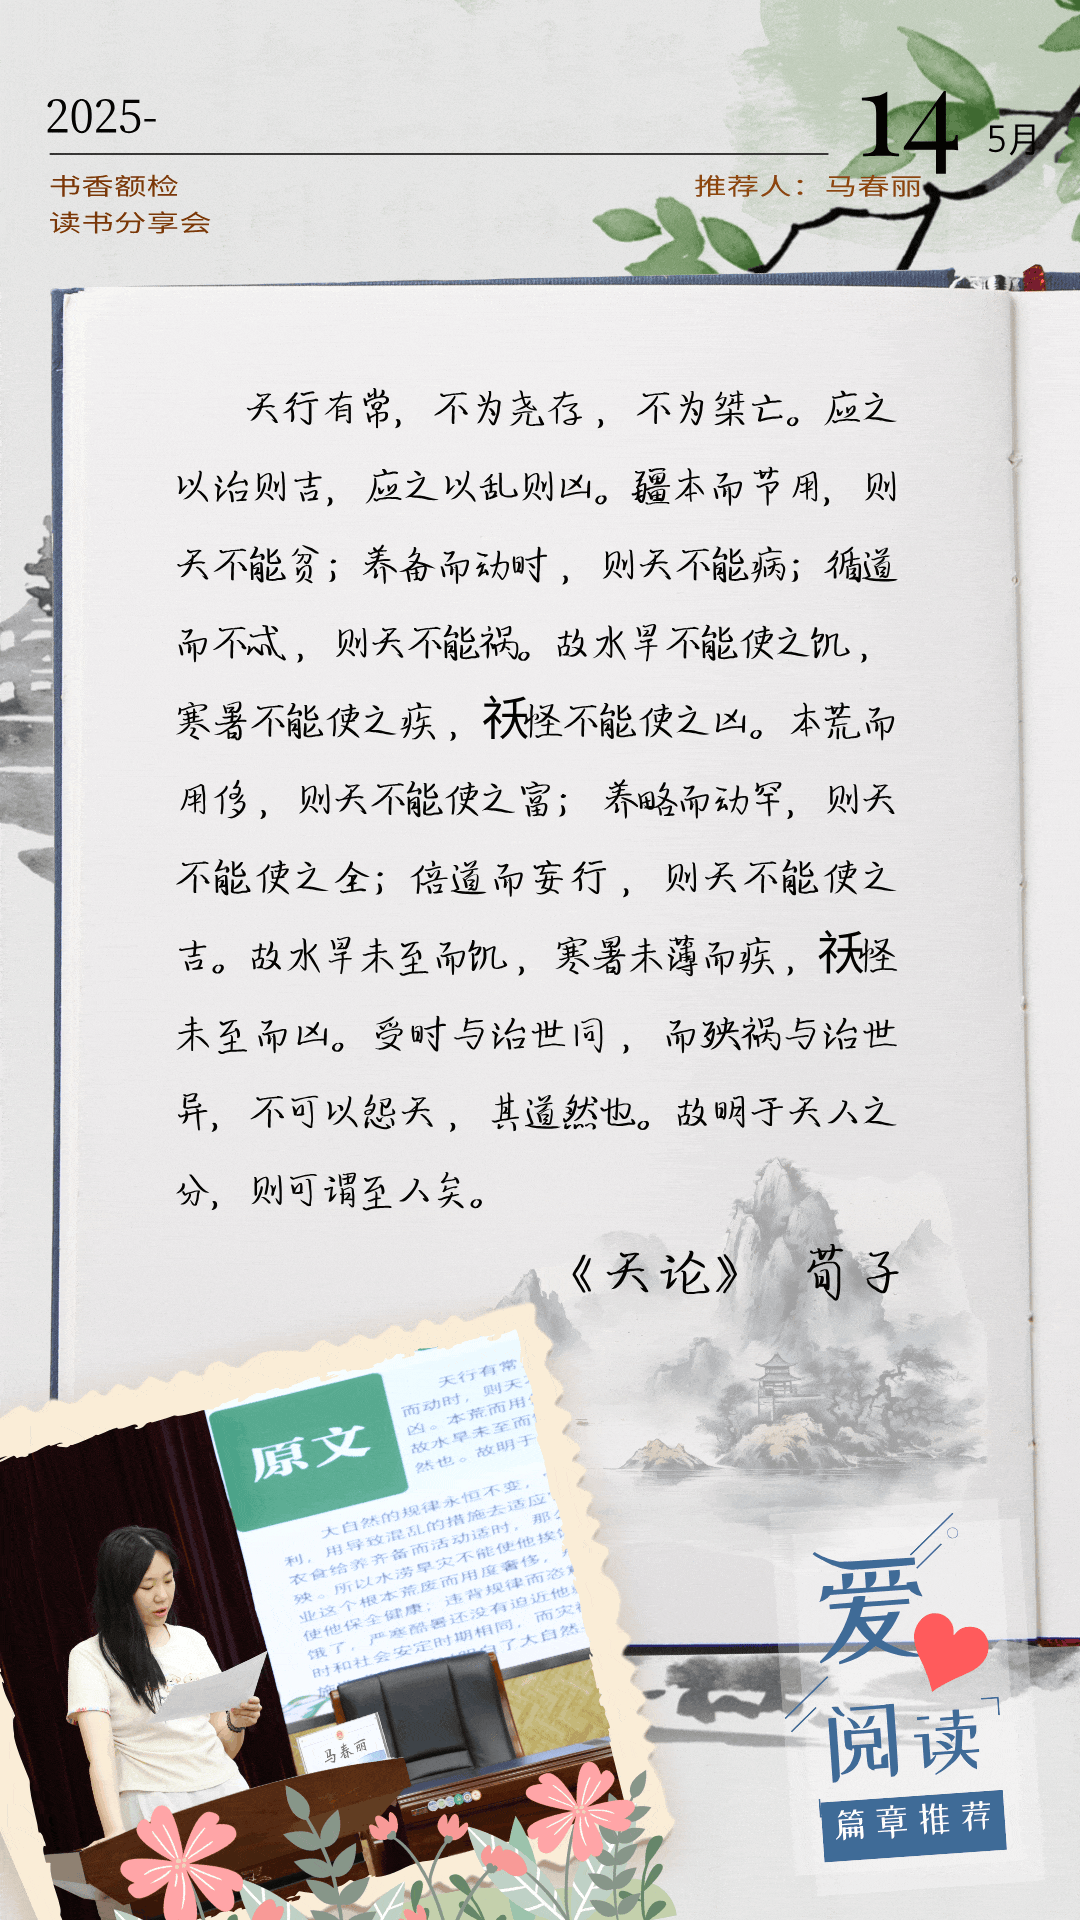 2025-
14 5月
书香额检
读书分享会
推荐人：马春丽
天行有常，不为尧存，不为桀亡。应之
以治则吉，应之以乱则凶。疆本而节用，则
天不能贫；养备而动时，则天不能病；循道
而不忒，则天不能祸。故水旱不能使之饥，
寒暑不能使之疾，祆怪不能使之凶。本荒而
用侈，则天不能使之富；养略而动罕，则天
不能使之全；倍道而妄行，则天不能使之
吉。故水旱未至而饥，寒暑未薄而疾，祆怪
未至而凶。受时与治世同，而殃祸与治世
异，不可以怨天，其道然也。故明于天人之
分，则可谓至人矣。
《天论》 荀子
原文
天行有常
而动时，则天
凶。本荒而用
故水旱未至而
然也。故明于
大自然的规律永恒不变，
利，用导致混乱的措施去适应
衣食给养齐备而活动适时，那么
殃。所以水涝旱灾不能使他挨饿
业这个根本荒废而用度奢侈，
使他保全健康；违背规律而恣意
饿了，严寒酷暑还没有迫近他
时和社会安定时期相同，而灾祸
明白了大自然
马春丽
爱
阅读
篇章推荐